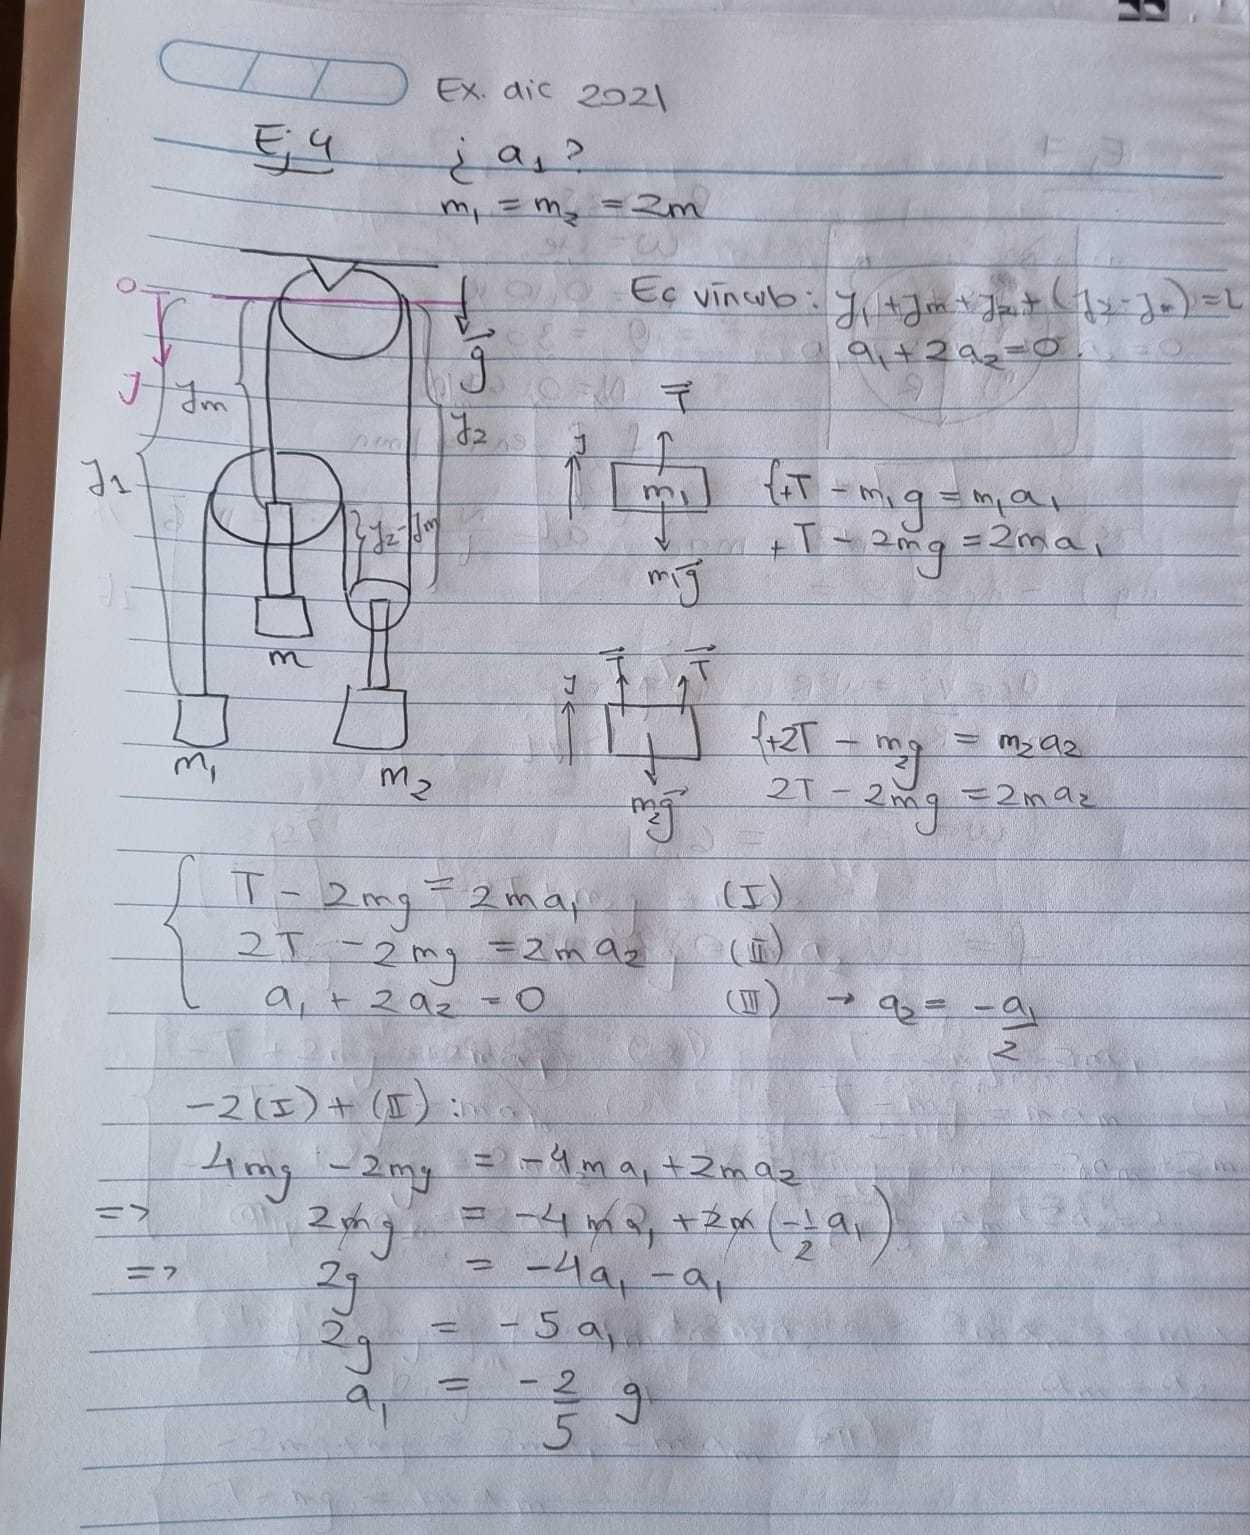 Ex. dic 2021
Ej 4 ¿ a₁ ?
m₁ = m₂ = 2m
Ec víncub: y₁ + ym + y₂ + (y₂ - ym) = L
a₁ + 2a₂ = 0
0
y
g
ym
y₂
y₁
y₂ - ym
m
m₁
m₂
T
y
m₁
m₁g
{+T - m₁g = m₁a₁
+T - 2mg = 2ma₁
T T
y
m₂g
{+2T - m₂g = m₂a₂
2T - 2mg = 2ma₂
T - 2mg = 2ma₁ (I)
2T - 2mg = 2ma₂ (II)
a₁ + 2a₂ = 0 (III) → a₂ = -a₁/2
-2(I) + (II) :
4mg - 2mg = -4ma₁ + 2ma₂
=> 2mg = -4ma₁ + 2m(-1/2 a₁)
=> 2g = -4a₁ - a₁
2g = -5a₁
a₁ = -2/5 g